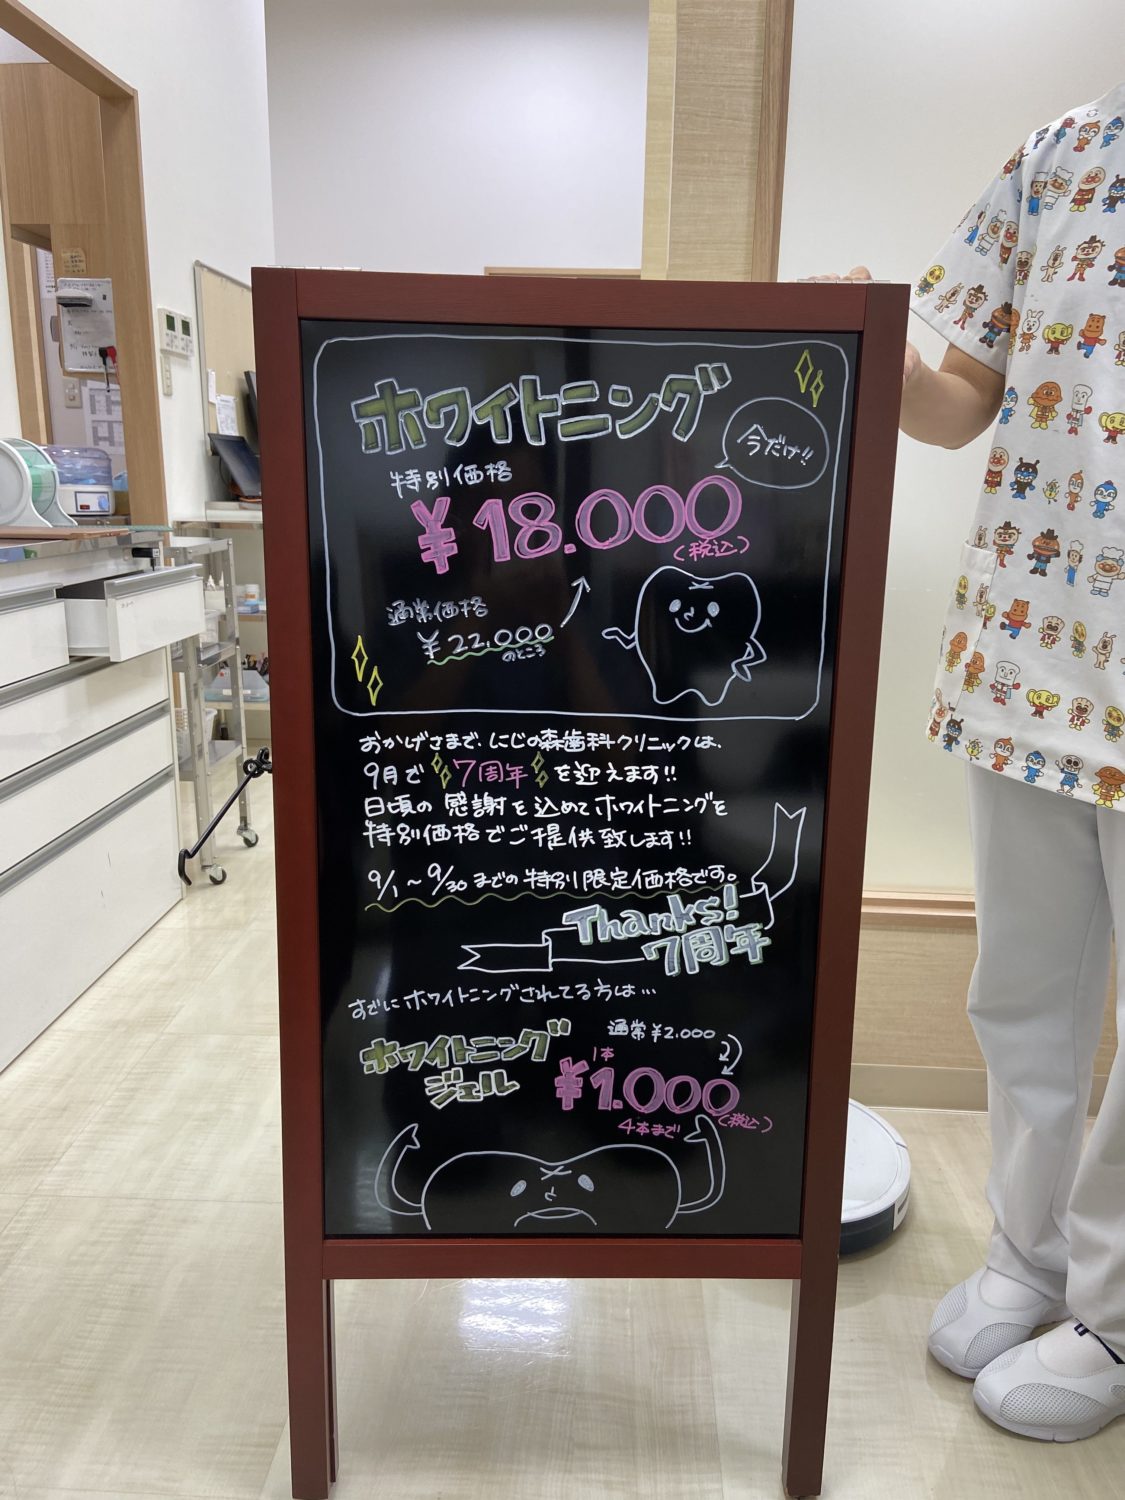 ホワイトニング
今だけ!!
特別価格
¥18.000
(税込)
通常価格
¥22,000
のところ
おかげさまで、にじの森歯科クリニックは、
9月で7周年を迎えます!!
日頃の感謝を込めてホワイトニングを
特別価格でご提供致します!!
9/1〜9/30までの特別限定価格です。
Thanks!
7周年
すでにホワイトニングされてる方は…
ホワイトニング
ジェル
通常¥2,000
1本
¥1.000
(税込)
4本まで